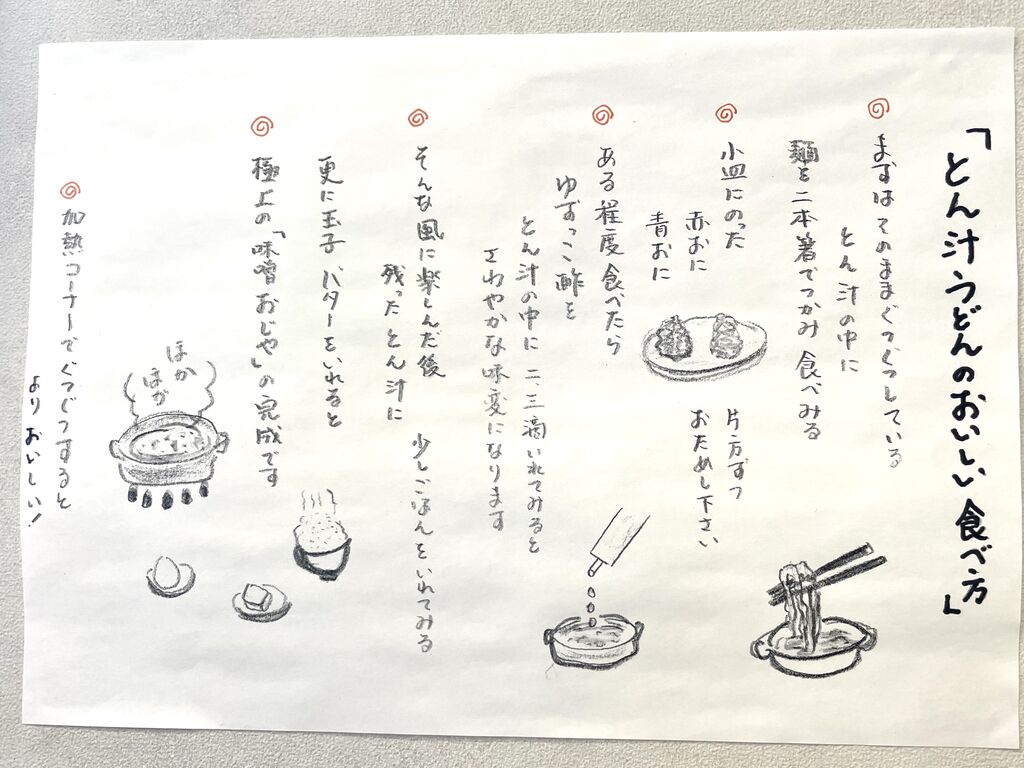 「とん汁うどんのおいしい食べ方」
まずはそのままぐつぐつしている
とん汁の中に
麺を二本箸でつかみ 食べみる
小皿にのった
赤おに
青おに
片方ずつ
おためし下さい
ある程度食べたら
ゆずっこ酢を
とん汁の中に 二、三滴いれてみると
さわやかな味変になります
そんな風に楽しんだ後
残ったとん汁に
少しごはんをいれてみる
更に玉子 バターをいれると
極上の「味噌おじや」の完成です
ほか
ほか
加熱コーナーでぐつぐつすると
よりおいしい!